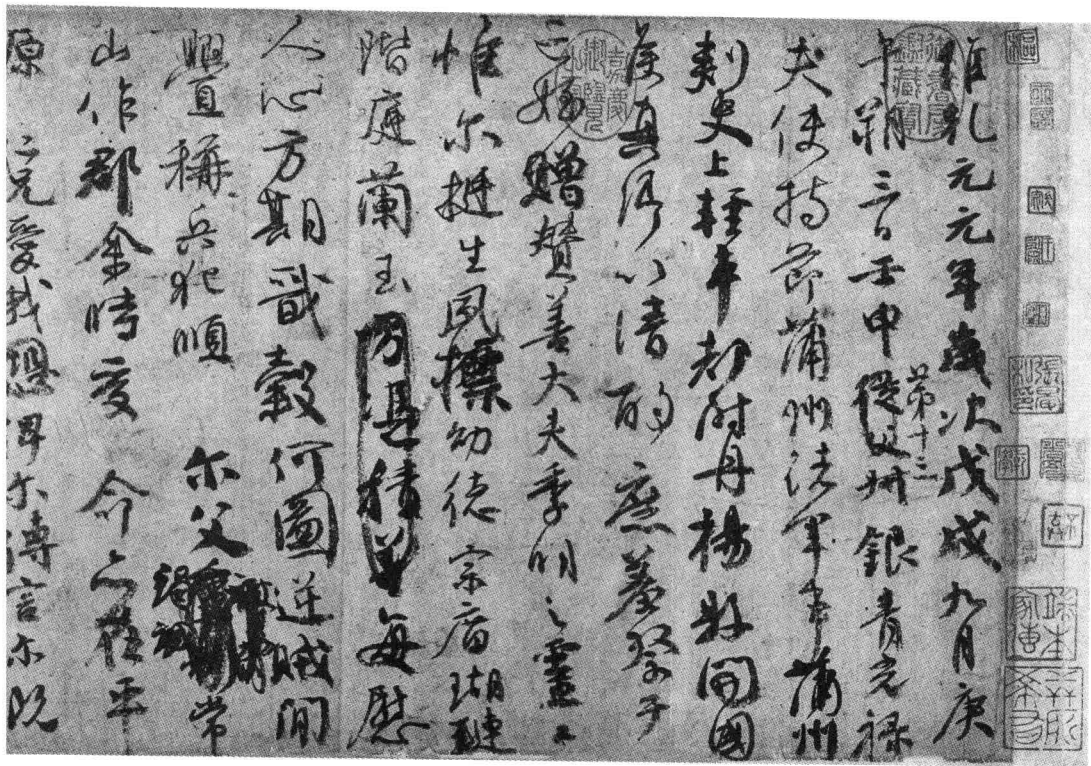 維乾元元年歲次戊戌九月庚
午朔三日壬申第十三從父叔銀青光祿
夫使持節蒲州諸軍事蒲州
刺史上輕車都尉丹楊縣開國
侯真卿以清酌庶羞祭于
亡姪贈贊善大夫季明之靈曰
惟尔挺生夙標幼德宗廟瑚璉
階庭蘭玉方憑積善每慰
人心方期戩穀何圖逆賊閒
舋稱兵犯順尔父竭誠常
山作郡余時受命亦在平
原仁兄愛我俾尔傳言尔既